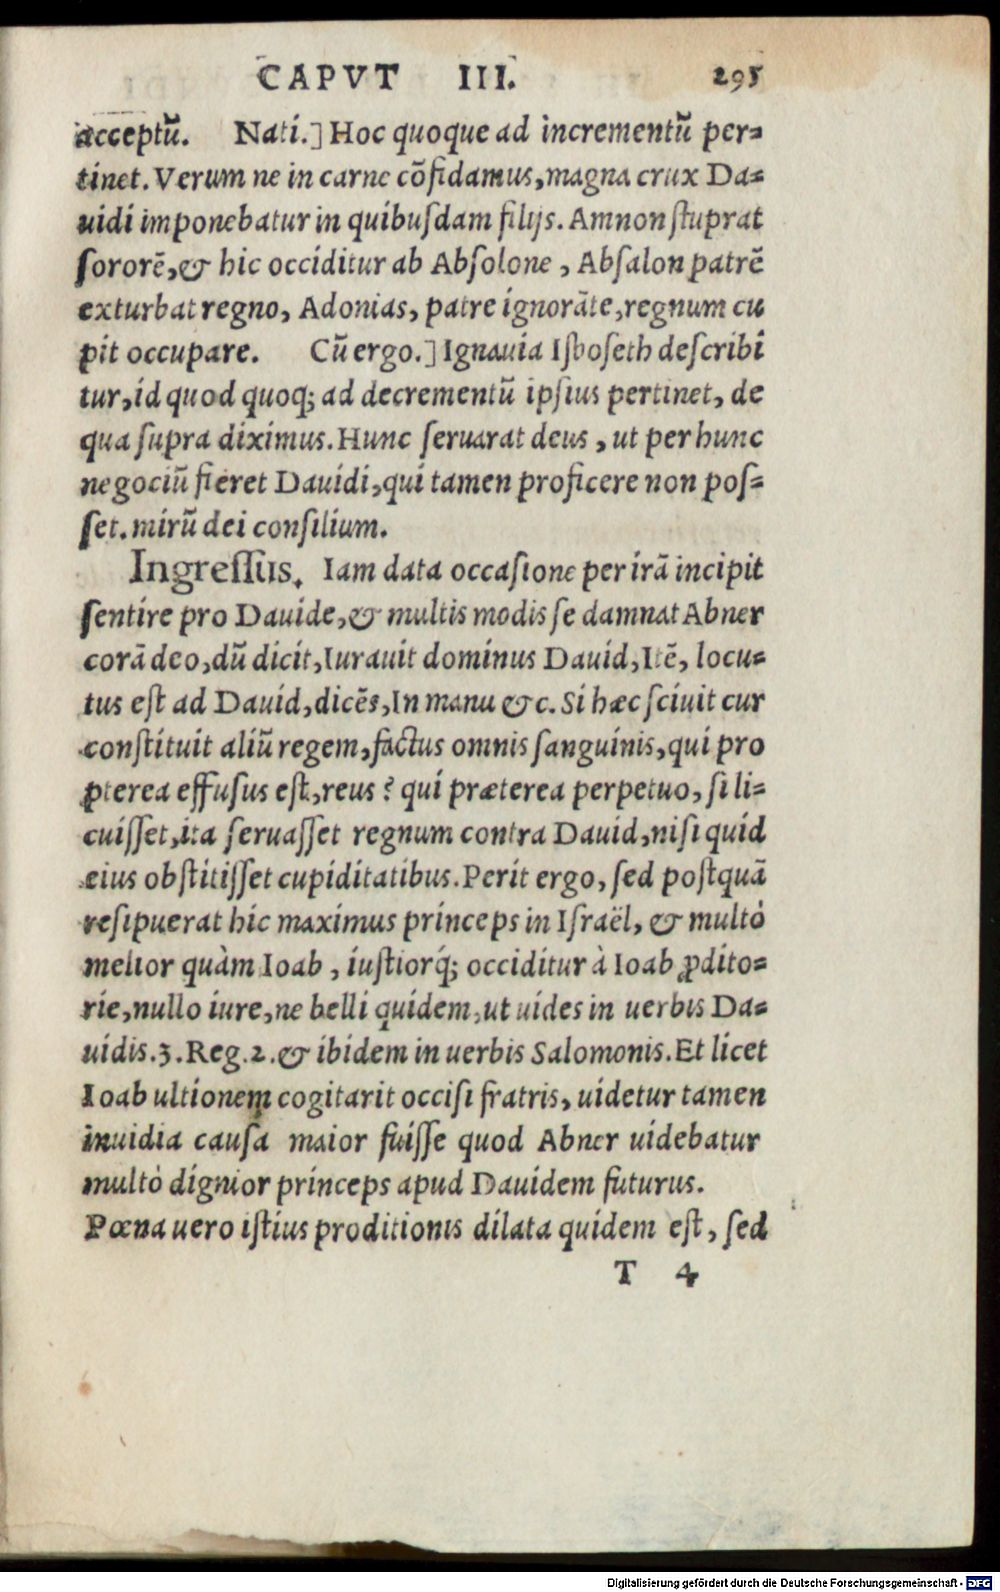 CAPVT III. 295
acceptū. Nati.] Hoc quoque ad incrementū per=
tinet. Verum ne in carne cōfidamus, magna crux Da=
uidi imponebatur in quibuſdam filijs. Amnon ſtuprat
ſororē, & hic occiditur ab Abſolone, Abſalon patrē
exturbat regno, Adonias, patre ignorāte, regnum cu
pit occupare. Cū ergo.] Ignauia Iſboſeth deſcribi
tur, id quod quoq; ad decrementū ipſius pertinet, de
qua ſupra diximus. Hunc ſeruarat deus, ut per hunc
negociū fieret Dauidi, qui tamen proficere non poſ=
ſet. mirū dei conſilium.
Ingreſſus. Iam data occaſione per irā incipit
ſentire pro Dauide, & multis modis ſe damnat Abner
corā deo, dū dicit, Iurauit dominus Dauid, Itē, locu=
tus eſt ad Dauid, dicēs, In manu &c. Si hæc ſciuit cur
conſtituit aliū regem, factus omnis ſanguinis, qui pro
pterea effuſus eſt, reus? qui præterea perpetuo, ſi li=
cuiſſet, ita ſeruaſſet regnum contra Dauid, niſi quid
eius obſtitiſſet cupiditatibus. Perit ergo, ſed poſtquā
reſipuerat hic maximus princeps in Iſraël, & multò
melior quàm Ioab, iuſtiorq́; occiditur à Ioab ꝓdito=
rie, nullo iure, ne belli quidem, ut uides in uerbis Da=
uidis. 3. Reg. 2. & ibidem in uerbis Salomonis. Et licet
Ioab ultionem cogitarit occiſi fratris, uidetur tamen
inuidia cauſa maior fuiſſe quod Abner uidebatur
multò dignior princeps apud Dauidem futurus.
Pœna uero iſtius proditionis dilata quidem eſt, ſed
T 4
Digitalisierung gefördert durch die Deutsche Forschungsgemeinschaft - DFG